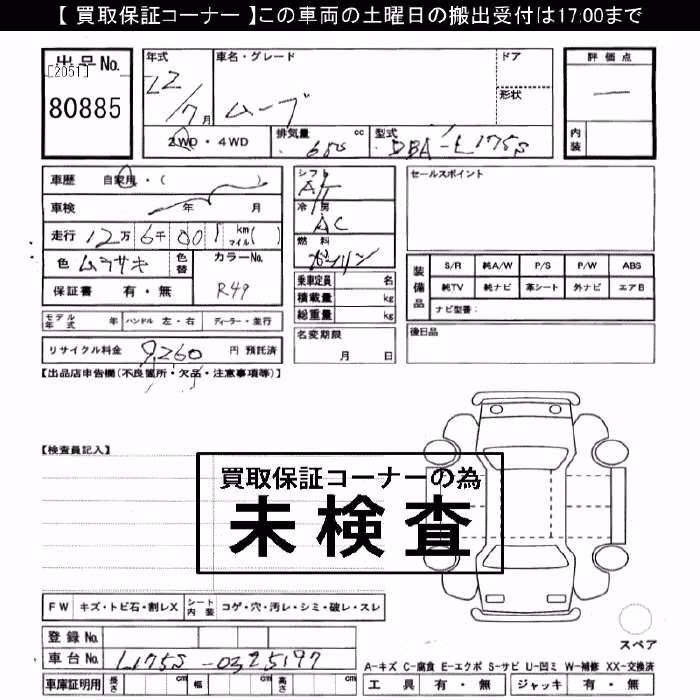 【 買取保証コーナー 】この車両の土曜日の搬出受付は17:00まで
出品No.
［2051］
80885
年式
22/7月
車名・グレード
ムーブ
ドア
形状
評価点
一
内装
2WD・4WD
排気量 650 cc
型式 DBA-L175S
車歴 自家用・( )
車検 年 月
走行 12万 6千 001 km マイル( )
色 ムラサキ 色替
カラーNo. R49
保証書 有・無
シフト AT
冷房 AC
燃料 ガソリン
乗車定員 名
積載量 kg
総重量 kg
名変期限
月 日
セールスポイント
装備品
S/R 純A/W P/S P/W ABS
純TV 純ナビ 革シート 外ナビ エアB
ナビ型番：
後日品
モデル年式 年 ハンドル 左・右 ディーラー・並行
リサイクル料金 9,260 円 預託済
【出品店申告欄(不良箇所・欠品・注意事項等)】
【検査員記入】
買取保証コーナーの為
未検査
FW キズ・トビ石・割レX シート内装 コゲ・穴・汚レ・シミ・破レ・スレ
登録No.
車台No. L175S-0325197
車庫証明用 長さ cm 幅 cm 高さ cm
スペア
A-キズ C-腐食 E-エクボ S-サビ U-凹ミ W-補修 XX-交換済
工具 有・無 ジャッキ 有・無